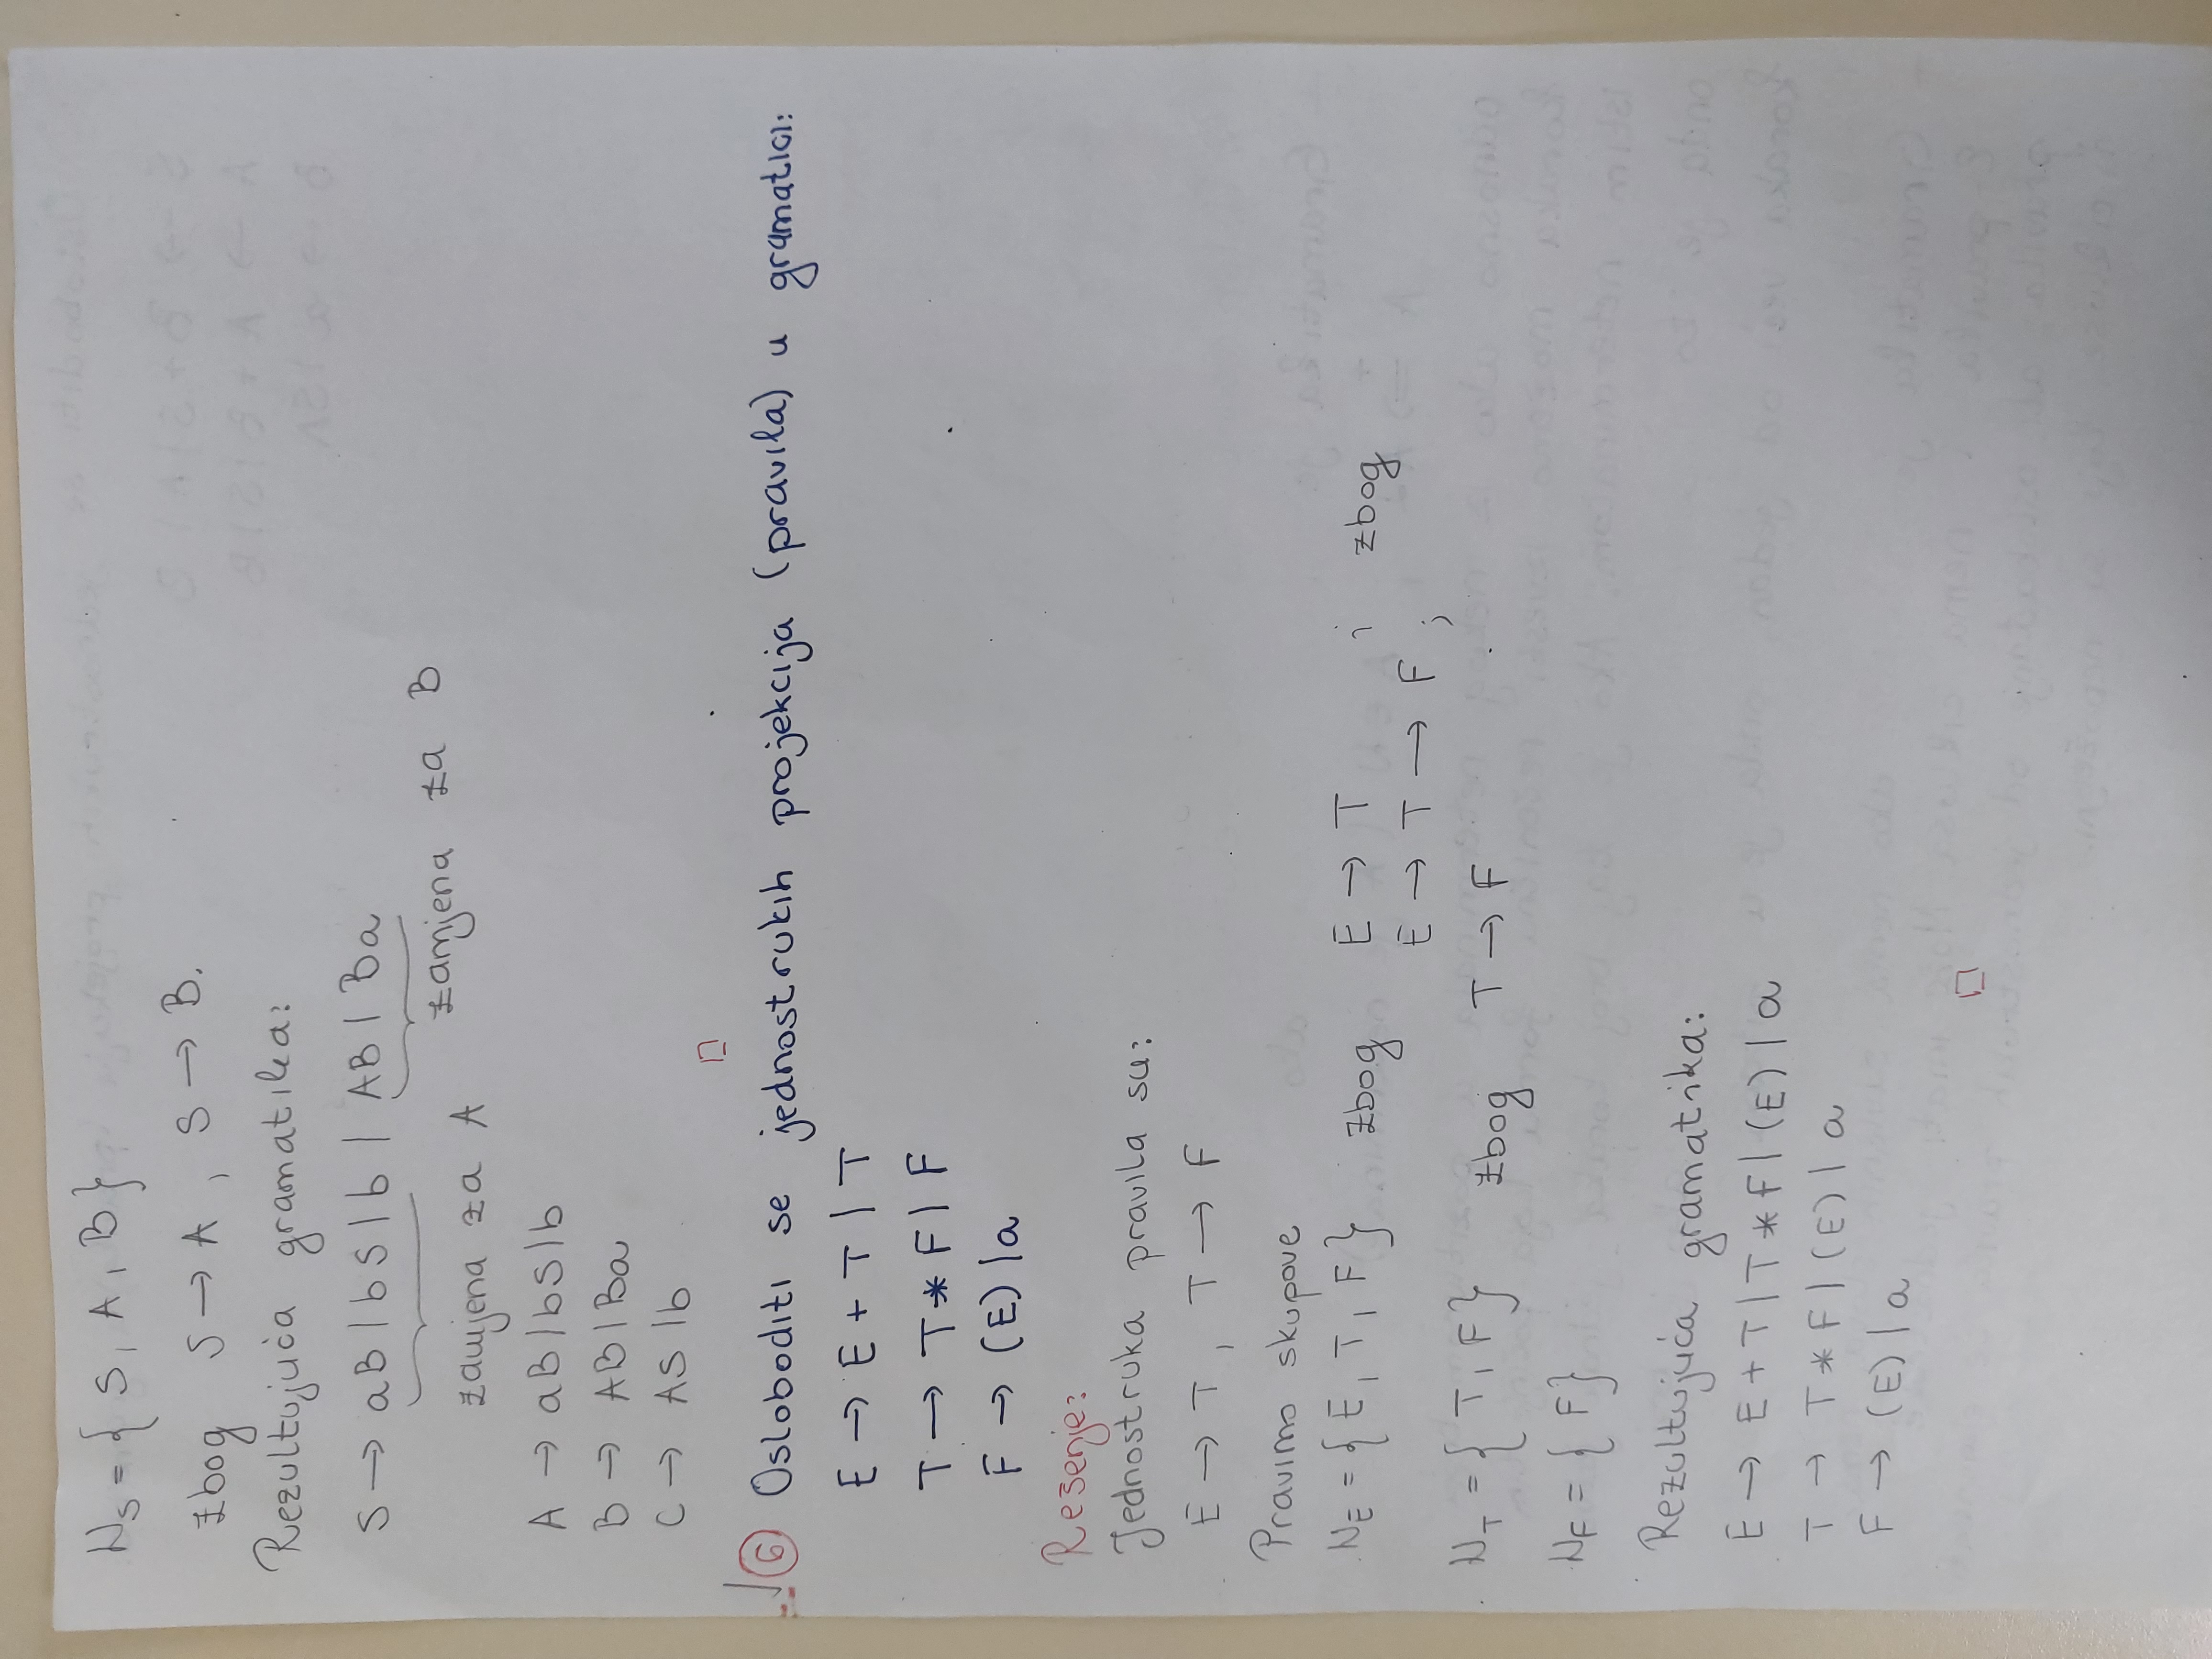 N_S = { S, A, B }
zbog S → A , S → B.
Rezultujuća gramatika:
S → aB | bS | b | AB | Ba
zamjena za B
zamjena za A
A → aB | bS | b
B → AB | Ba
C → AS | b
□
√ 6 Osloboditi se jednostrukih projekcija (pravila) u gramatici:
E → E + T | T
T → T * F | F
F → (E) | a
Rešenje:
Jednostruka pravila su:
E → T , T → F
Pravimo skupove
N_E = { E, T, F } zbog E → T i zbog
E → T → F ;
N_T = { T, F } zbog T → F
N_F = { F }
Rezultujuća gramatika:
E → E + T | T * F | (E) | a
T → T * F | (E) | a
F → (E) | a
□